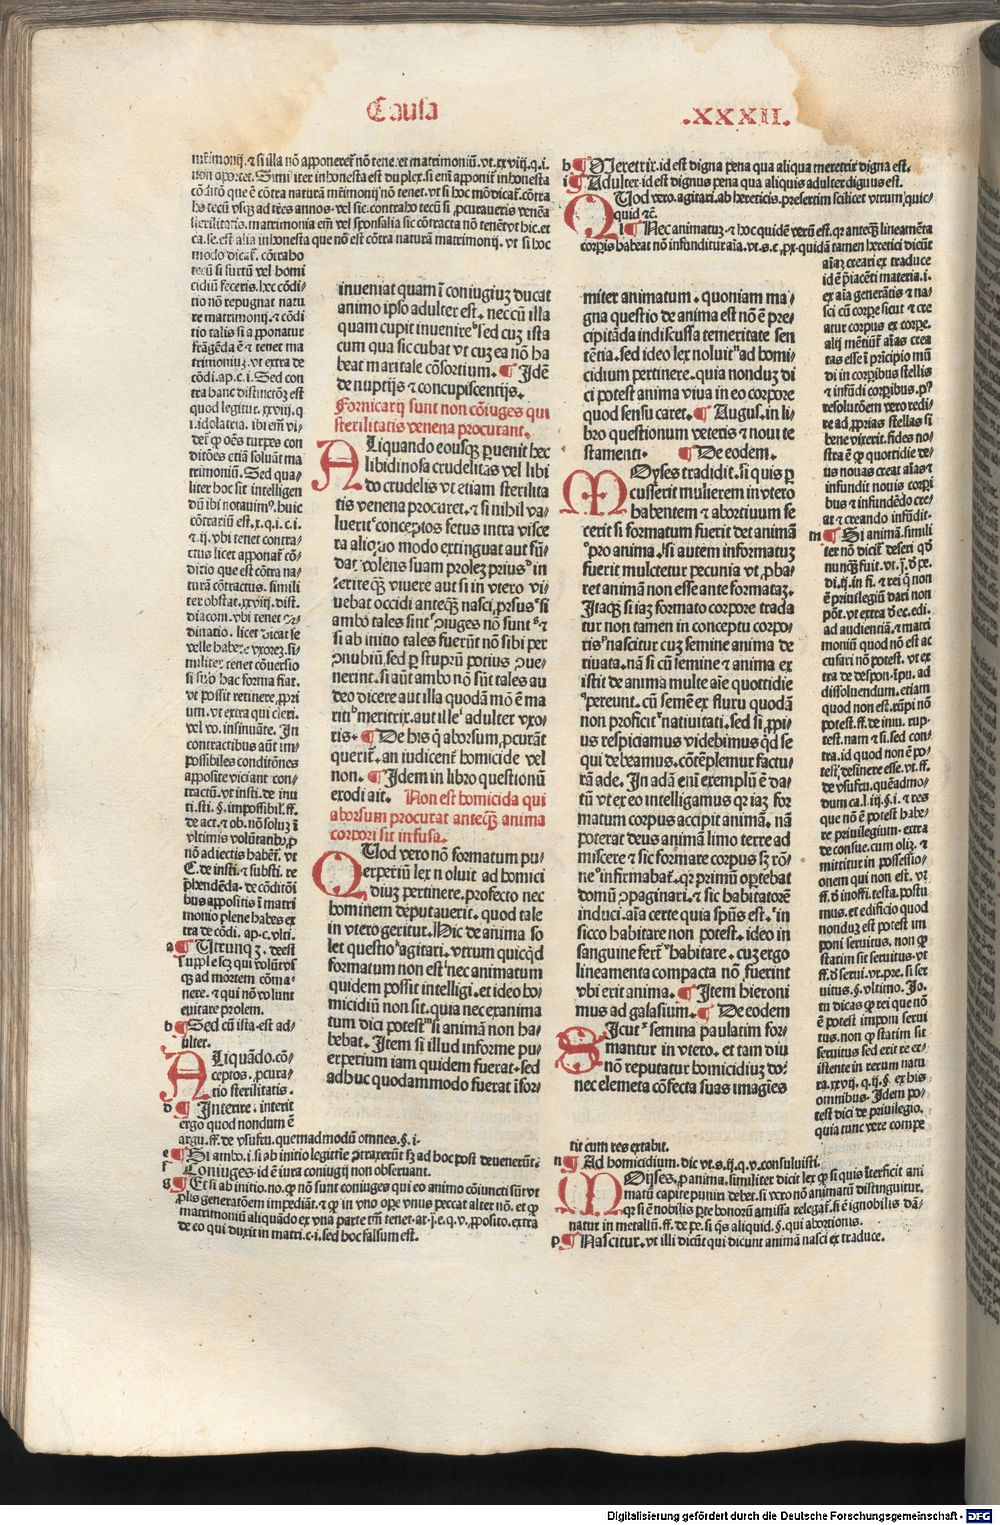 Causa
.XXXII.
mr̄imonij. ⁊ si illa nō apponeret̄ nō tene. et matrimoniū. vt. xxviij. q. i.
non oportet. Similiter inhonesta est duplex. si em̄ apponit̄ inhonesta
cōditō que ē cōtra naturā mr̄imonij nō tenet. vt si hoc mō dicat̄. cōtra
ho tecū vsq; ad tres annos. vel sic. contraho tecū si ꝓcuraueris venena
sterilitatis. matrimonia em̄ vel sponsalia sic cōtracta nō tenēt vt hic. et
ca. se. est alia inhonesta que nō est cōtra naturā matrimonij. vt si hoc
modo dicat̄. cōtraho
tecū si furtū vel homi
cidiū feceris. hec cōdi/
tio nō repugnat natu
re matrimonij. ⁊ cōdi
tio talis si apponatur
frāgēda ē ⁊ tenet ma
trimoniuȝ. vt extra de
cōdi. ap. c. i. Sed con
tra hanc distinctōeȝ est
quod legitur. xxviij. q.
i. idolatria. ibi em̄ vi/
det̄ ꝙ oēs turpes con
ditōes etiā soluāt ma
trimoniū. Sed qua/
liter hoc sit intelligen
dū ibi notauimꝰ. huic
cōtrariū est. x. q. i. c. i.
⁊ ij. vbi tenet contra/
ctus licet apponat̄ cō/
ditio que est cōtra na/
turā cōtractus. simili
ter obstat. xxviij. dist.
diacom. vbi tenet or/
dinatio. licet dicat se
velle habere vxoreȝ. si/
militer tenet cōuersio
si sub hac forma fiat.
vt possit retinere ꝓpri
um. vt extra qui cleri.
vel vo. insinuāte. In
contractibus aūt im/
possibiles conditōnes
apposite viciant con/
tractū. vt insti. de inu
ti. sti. §. impossibil̄. ff.
de act. ⁊ ob. nō soluȝ ī
vltimis volūtatibꝰ. ꝓ
nō adiectis habēt̄. vt
C. de insti. ⁊ substi. re
p̄hendēda. de cōditōi
bus appositis ī matri
monio plene habes ex
tra de cōdi. ap. c. vlti.
a ¶ Utrunqȝ. deest
supple scȝ qui volūt vs
qȝ ad mortem cōma/
nere. ⁊ qui nō volunt
euitare prolem.
b ¶ Sed cū ista. est ad/
ulter.
ALiquādo. cō/
ceptos. ꝓcura/
tio sterilitatis.
d ¶ Interire. interit
ergo quod nondum ē
argu. ff. de vsufru. quemadmodū omnes. §. i.
e ¶ Si ambo. i. si ab initio legittīe ꝯtraxerūt sȝ ad hoc post deuenerūt.
f Coniuges. id ē iura coniugij non obseruant.
g ¶ Et si ab initio. no. ꝙ nō sunt coniuges qui eo animo cōiuncti sūt vt
ꝓlis generatōem impediāt. ⁊ ꝙ in vno oꝑe vnus peccat alter nō. et ꝙ
matrimoniū aliquādo ex vna parte tm̄ tenet. ar. j. e. q. v. ꝓposito. extra
de eo qui duxit in matri. c. i. sed hoc falsum est.
inueniat quam ī coniugiuȝ ducat
animo ipso adulter est. nec cū illa
quam cupit inuenire sed cuȝ ista
cum qua sic cubat vt cuȝ ea nō ha
beat maritale cōsortium. ¶ Idē
de nuptijs ⁊ concupiscentijs.
Fornicarij sunt non cōiuges qui
sterilitatis venena procurant.
ALiquando eousqȝ ꝑuenit hec
libidinosa crudelitas vel libi
do crudelis vt etiam sterilita
tis venena procuret. ⁊ si nihil va/
luerit conceptos fetus intra visce
ra aliquo modo extinguat aut fū/
dat. volens suam proleȝ prius in
terire qȝ viuere aut si in vtero vi/
uebat occidi anteqȝ nasci. ꝓrsus si
ambo tales sint ꝯiuges nō sunt ⁊
si ab initio tales fuerūt nō sibi per
ꝯnubiū. sed ꝑ stuprū potius ꝯue/
nerint. si aūt ambo nō sūt tales au
deo dicere aut illa quodā mō ē ma
riti meritrix. aut ille adulter vxo/
ris. ¶ De his q̄ aborsum ꝓcurāt
querit̄. an iudicent̄ homicide vel
non. ¶ Idem in libro questionū
exodi ait. Non est homicida qui
aborsum procurat anteqȝ anima
corpori sit infusa.
QUod vero nō formatum pu/
erperiū lex noluit ad homici
diuȝ pertinere. profecto nec
hominem deputauerit. quod tale
in vtero geritur. Hic de anima so
let questio agitari. vtrum quicqd̄
formatum non est nec animatum
quidem possit intelligi. et ideo ho/
micidiū non sit. quia nec exanima
tum dici potest si animā non ha/
bebat. Item si illud informe pu/
erperium iam quidem fuerat. sed
adhuc quodammodo fuerat īfor/
miter animatum. quoniam ma/
gna questio de anima est nō ē pre/
cipitāda indiscussa temeritate sen
tētia. sed ideo lex noluit ad homi/
cidium pertinere. quia nonduȝ di
ci potest anima viua in eo corpore
quod sensu caret. ¶ Augus. in li/
bro questionum veteris ⁊ noui te
stamenti. ¶ De eodem.
MOyses tradidit. si quis ꝑ
cusserit mulierem in vtero
habentem ⁊ abortiuum fe
cerit si formatum fuerit det animā
pro anima. si autem informatuȝ
fuerit mulctetur pecunia vt ꝓba/
ret animam non esse ante formataȝ.
Itaqȝ si iaȝ formato corpore trada
tur non tamen in conceptu corpo/
ris nascitur cuȝ semine anima de
riuata. nā si cū semine ⁊ anima ex
istit de anima multe aīe quottidie
pereunt. cū semē ex fluxu quodā
non proficit natiuitati. sed si ꝓpi/
us respiciamus videbimus qd̄ se
qui debeamus. cōtēplemur factu/
rā ade. In adā eni exemplū ē da/
tū vt ex eo intelligamus qr iaȝ for
matum corpus accipit animā. nā
poterat deus animā limo terre ad
miscere ⁊ sic formare corpus sȝ rō/
ne infirmabat̄. qr primū oꝑtebat
domū ꝯpaginari. ⁊ sic habitatorē
induci. aīa certe quia spūs est. in
sicco habitare non potest. ideo in
sanguine fert̄ habitare. cuȝ ergo
lineamenta compacta nō fuerint
vbi erit anima. ¶ Item hieroni
mus ad galasium. ¶ De eodem
SIcut semina paulatim for/
mantur in vtero. et tam diu
nō reputatur homicidiuȝ do/
nec elemēta cōfecta suas imagīes
h ¶ Meretrix. id est digna pena qua aliqua meretrix digna est.
i ¶ Adulter. id est dignus pena qua aliquis adulter dignus est.
QUod vero. agitari. ab hereticis. presertim scilicet vtrum quic/
quid ⁊c̄.
l ¶ Nec animatuȝ. ⁊ hoc quidē verū est. qr anteqȝ lineamēta
corꝑis habeat nō infunditur aīa. vt. s. c. ꝓx. quidā tamen heretici dicūt
aīaȝ creari ex traduce
id ē p̄iacēti materia. i.
ex aīa generātis ⁊ na/
sci cū corꝑe sicut ⁊ cre
atur corpus ex corꝑe.
alij mētiūt̄ aīas crea
tas esse ī prīcipio mū
di in corꝑibus stellis
⁊ infūdi corꝑibus. pꝰ
resolutōem vero redi/
re ad ꝓprias stellas si
bene vixerit. fides no/
stra ē ꝙ quottidie de/
us nouas creat aīas ⁊
infundit nouis corꝑi
bus ⁊ infundēdo cre/
at ⁊ creando infūdit.
m ¶ Si animā. simili
ter nō dicit̄ deseri qd̄
nunqȝ fuit. vt. j. d̄ pe.
di. ij. in fi. ⁊ rei q̄ non
ē priuilegiū dari non
pōt. vt extra d̄ ec. edi.
ad audientiā. ⁊ matri
moniū quod nō est ac
cusari nō potest. vt ex
tra de despon. īpu. ad
dissoluendum. etiam
quod non est. rūpi nō
potest. ff. de iniu. rup/
test. nam ⁊ si. sed con/
tra. id quod non ē po/
test desinere esse. vt. ff.
de vsufru. quēadmo/
dum ca. l. iij. §. i. ⁊ res
que nō ē potest habe/
re priuilegium. extra
de consue. cum oliȝ. ⁊
mittitur in possessio/
onem qui non est. vt
ff. d̄ inoffi. testa. postu
mus. et edificio quod
nonduȝ est potest im
poni seruitus. non ꝙ
statim sit seruitus. vt
ff. d̄ serui. vr. pre. si ser
uitus. §. vltimo. Jo.
tu dicas ꝙ rei que nō
ē potest imponi serui
tus. non ꝙ statim sit
seruitus sed erit re ex/
istente in rerum natu
ra. xxvij. q. ij. §. ex his
omnibus. Idem po/
test dici de priuilegio.
quia tunc vere compe
tit cum res extabit.
n ¶ Ad homicidium. dic vt. s. ij. q. v. consuluisti.
MOyses. ꝓ anima. similiter dicit lex ꝙ si quis īterficit ani
matū capite puniri debet. si vero nō animatū distinguitur.
qr si ē nobilis ꝑte bonorū amissa relegat̄. si ē ignobilis dā/
natur in metallū. ff. de pe. si q̄s aliquid. §. qui abortionis.
p ¶ Nascitur. vt illi dicūt qui dicunt animā nasci ex traduce.
Digitalisierung gefördert durch die Deutsche Forschungsgemeinschaft - DFG